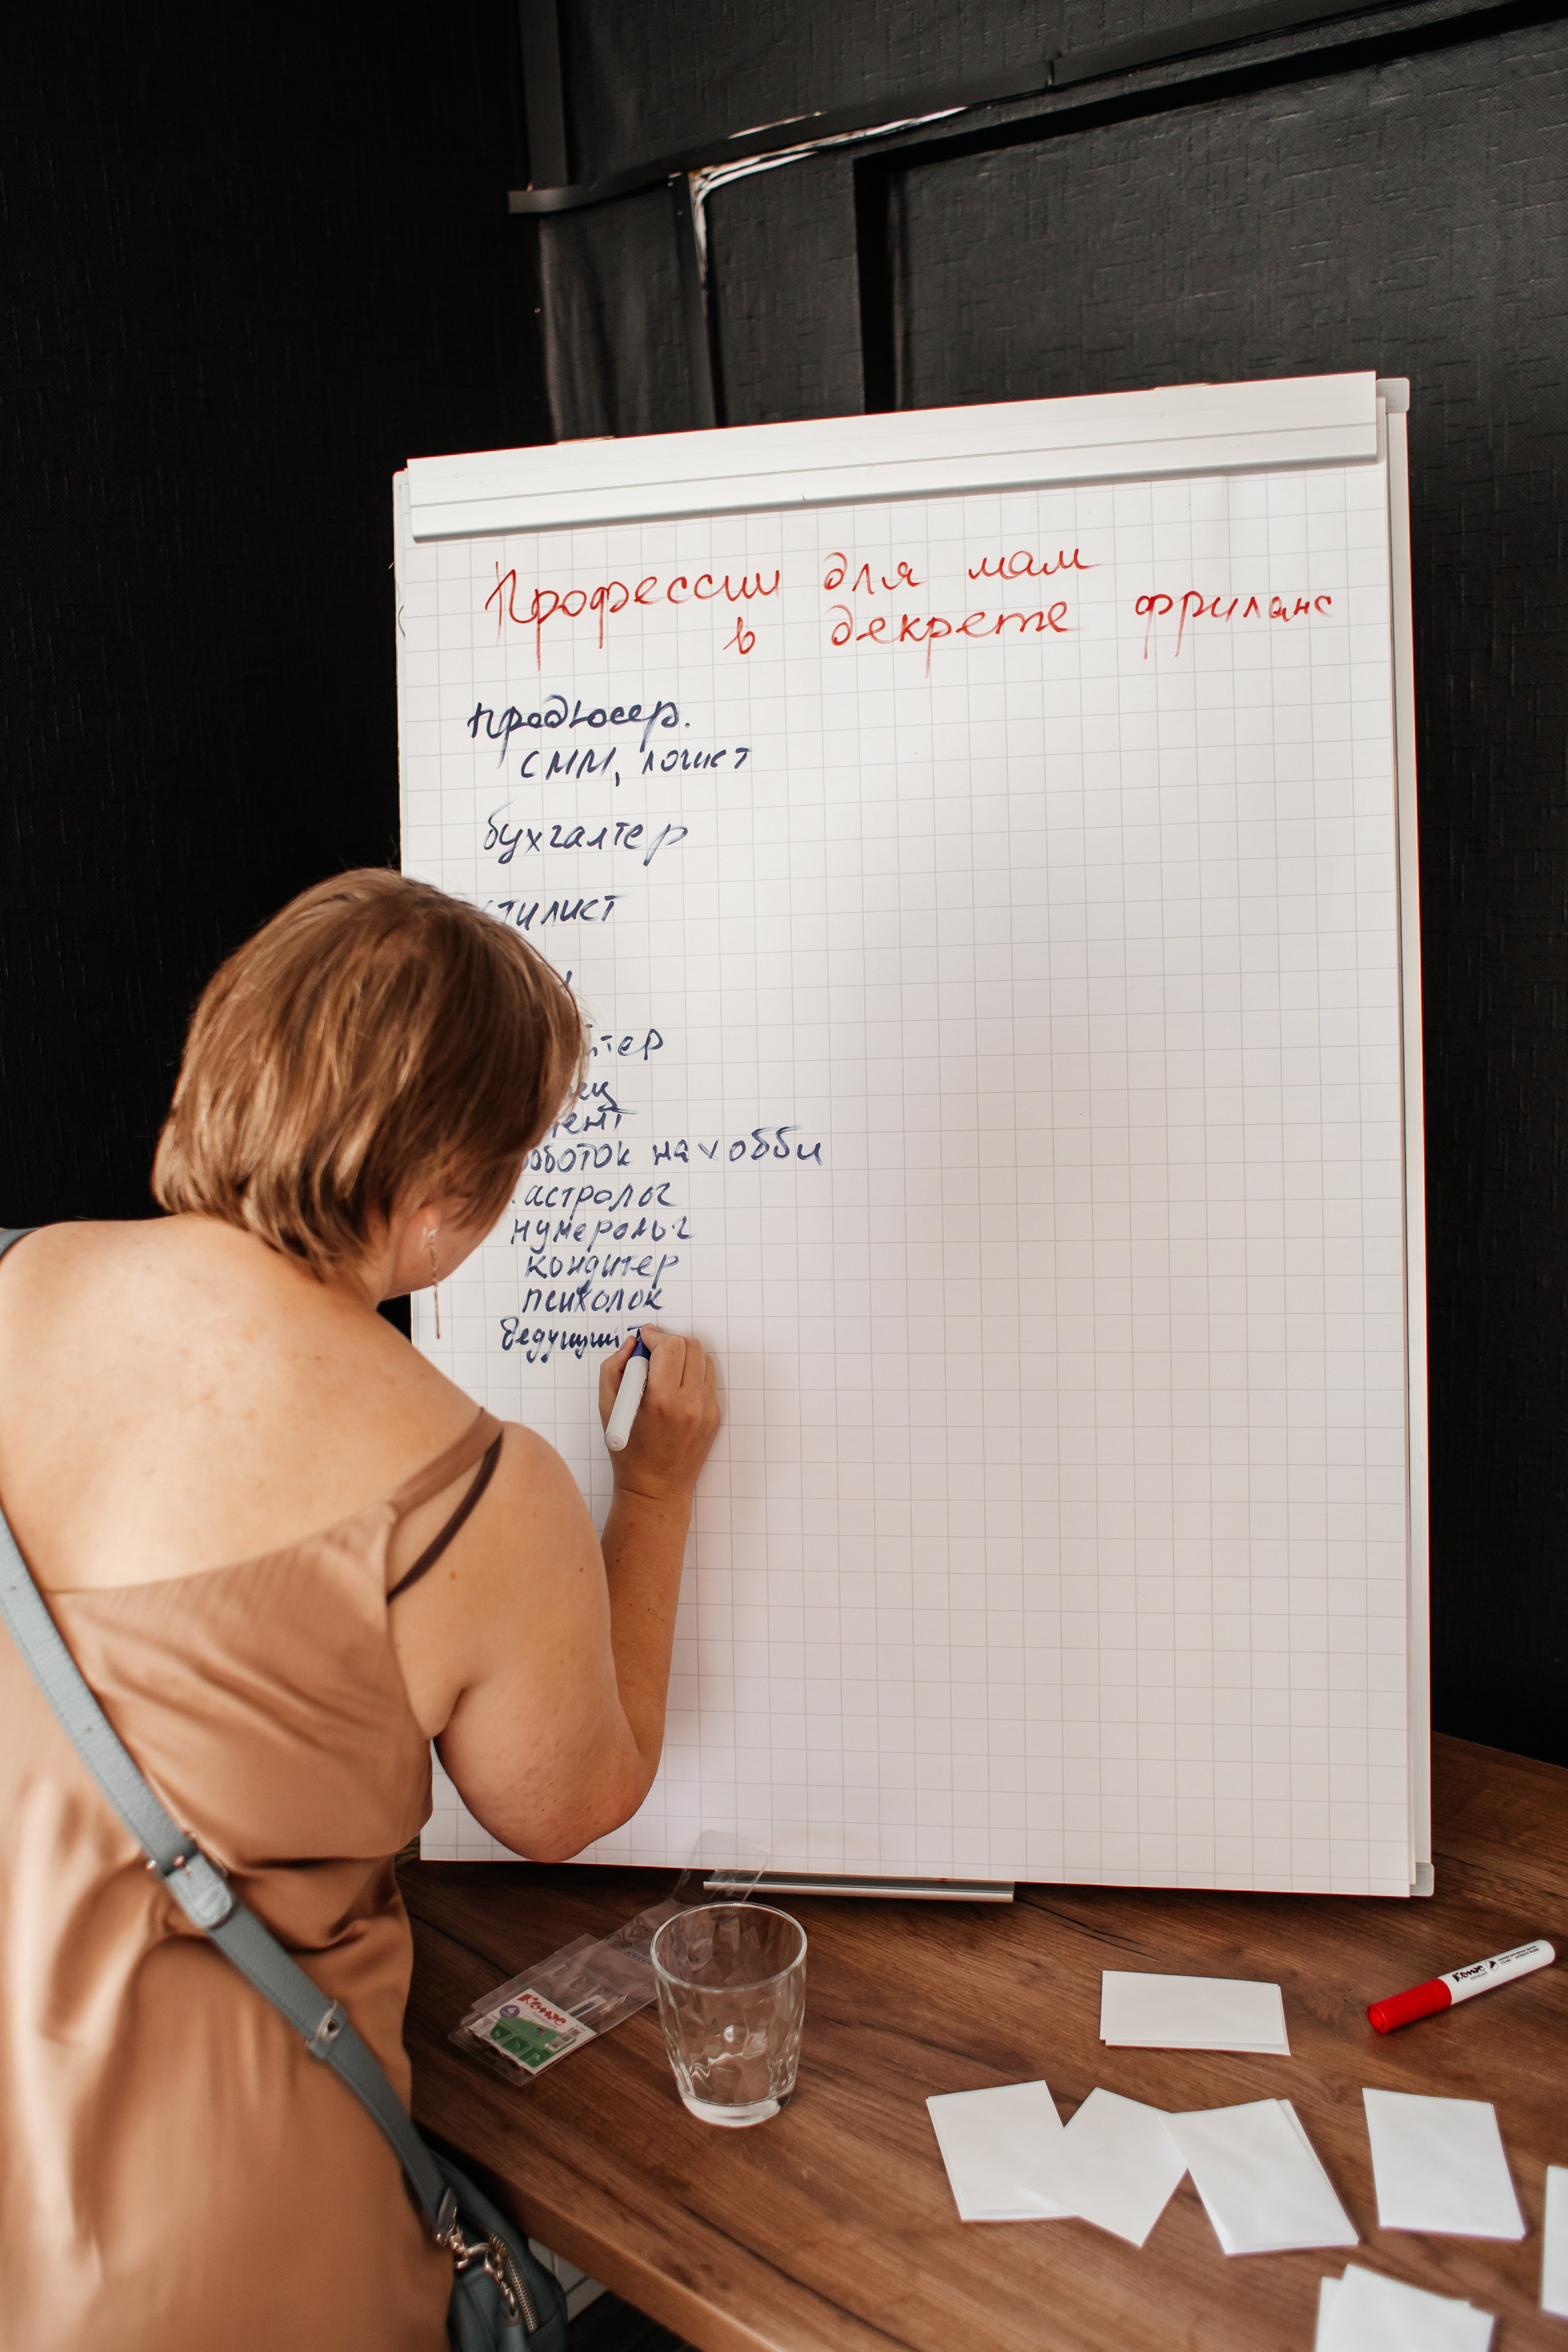 Профессии для мам
в декрете фриланс
продюсер.
СММ, логист
бухгалтер
стилист
тер
ец
ент
оботок на хобби
астролог
нумеролог
кондитер
психолок
Ведущий
Комус
Комус